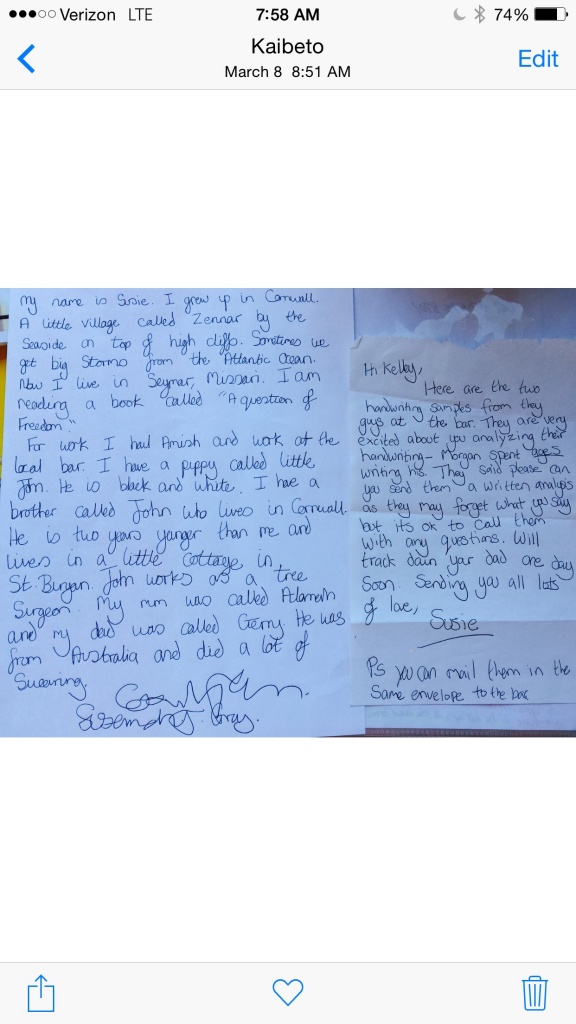 Verizon LTE
7:58 AM
74%
Kaibeto
March 8 8:51 AM
Edit
My name is Susie. I grew up in Cornwall.
A little village called Zennar by the
Seaside on top of high cliffs. Sometimes we
get big Storms from the Atlantic Ocean.
Now I live in Seymar, Missouri. I am
reading a book called "A question of
Freedom."
For work I haul Amish and work at the
local bar. I have a puppy called little
Jim. He is black and white. I have a
brother called John who lives in Cornwall.
He is two years younger than me and
lives in a little Cottage in
St. Buryan. John works as a tree
Surgeon. My mum was called
and my dad was called Gerry. He was
from Australia and did a lot of
Swearing.
Hi Kelby,
Here are the two
handwriting samples from they
guys at the bar. They are very
excited about you analyzing their
handwriting - Morgan spent ages
writing his. They said please can
you send them a written analysis
as they may forget what you say
but its ok to call them
with any questions. Will
track down your dad one day
Soon. Sending you all lots
of love,
Susie
PS you can mail them in the
Same envelope to the bar